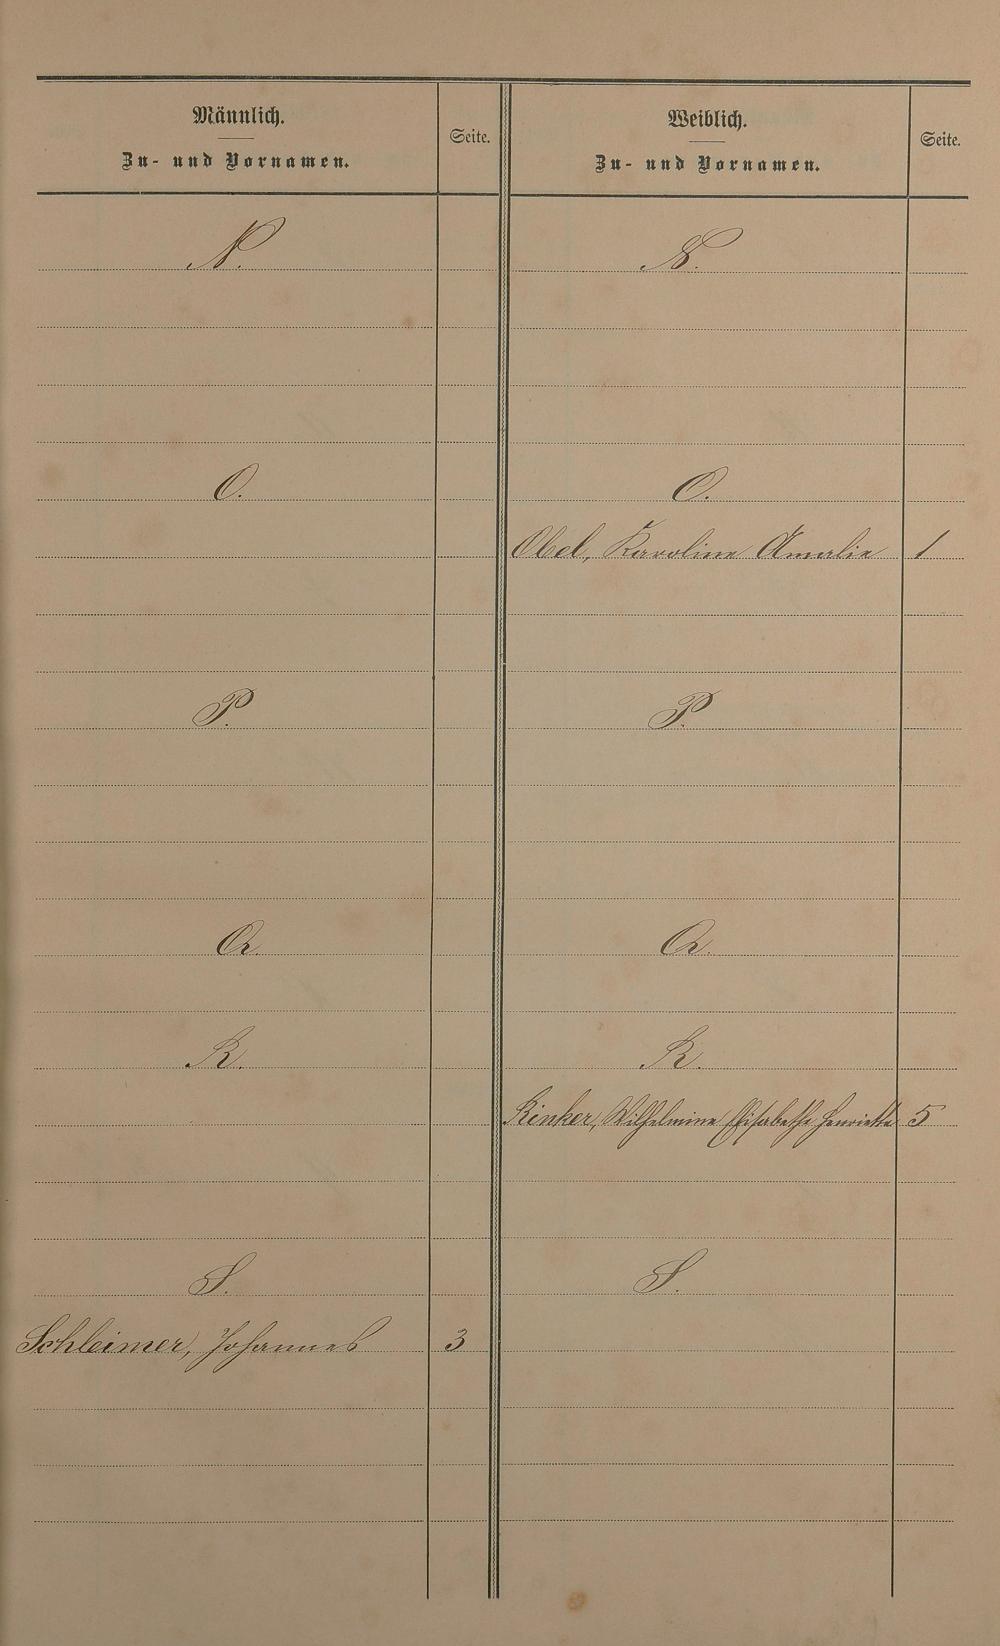 Männlich.
Zu- und Vornamen.
Seite.
Weiblich.
Zu- und Vornamen.
Seite.
N. N.
O. O.
Obel, Karoline Amalie 1
P. P.
Q. Q.
R. R.
Rinker, Wilhelmine Elisabethe Henriette 5
S. S.
Schleimer, Johannes 3